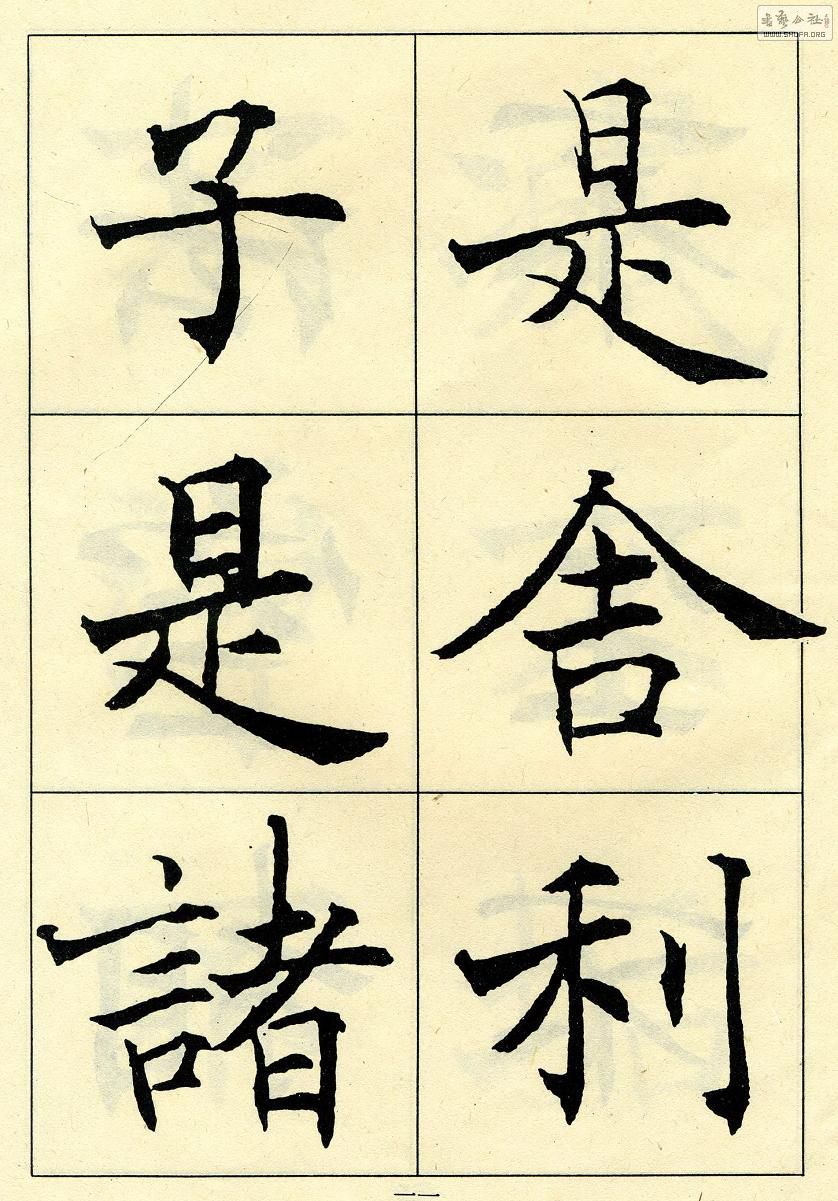 是舍利
子是諸
一一
書藝公社
WWW.SHUFA.ORG